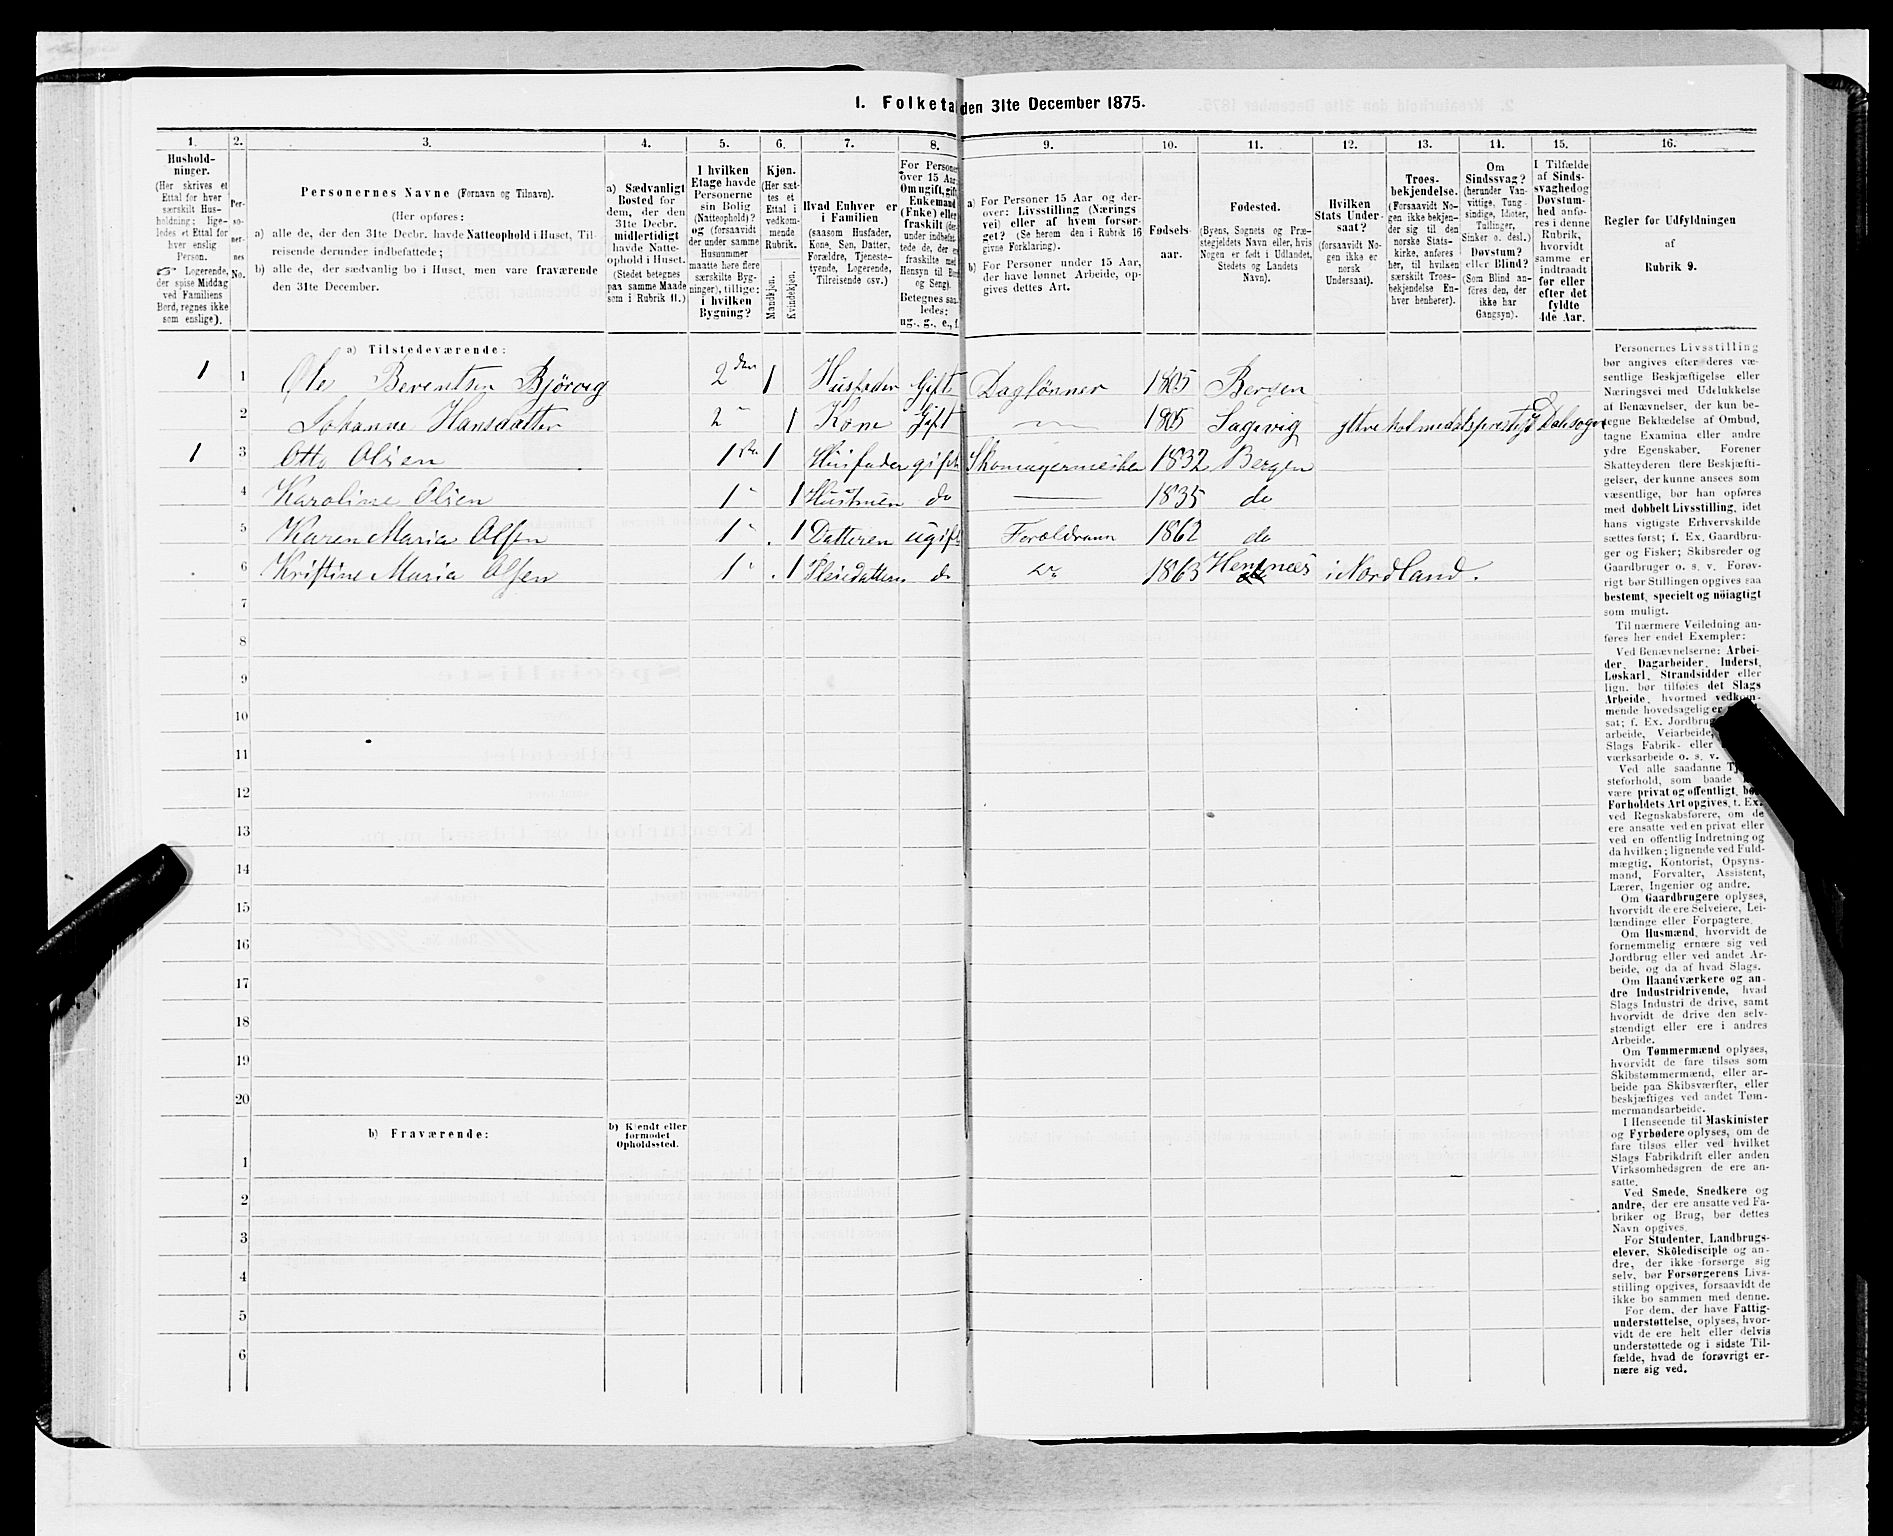 1. Folketa den 31te December 1875.
1. 2. 3. 4. 5. 6. 7. 8. 9. 10. 11. 12. 13. 14. 15. 16.
Hushold-
ninger.
(Her skrives et
Ettal for hver
særskilt Hus-
holdning; lige-
ledes et Ettal for
hver enslig
Person.
☞ Logerende,
der spise Middag
ved Familiens
Bord, regnes ikke
som enslige).
Per-
so-
ner-
nes
No.
Personernes Navne (Fornavn og Tilnavn).
(Her opføres:
a) alle de, der den 31te Decbr. havde Natteophold i Huset, Til-
reisende derunder indbefattede;
b) alle de, der sædvanlig bo i Huset, men vare fraværende
den 31te December.
a) Sædvanligt
Bosted for
dem, der den
31te Decbr.
midlertidigt
havde Natte-
ophold i Huset.
(Stedet betegnes
paa samme Maade
som i Rubrik 11.)
I hvilken
Etage havde
Personerne
sin Bolig
(Natteophold)?
og (forsaavidt
der under samme
Husnummer
maatte høre flere
særskilte Byg-
ninger), tillige:
i hvilken
Bygning?
Kjøn.
(Her sæt-
tes et
Ettal i
vedkom-
mende
Rubrik.
Mandkjøn.
Kvindekjøn.
Hvad Enhver er
i Familien
(saasom Husfader,
Kone, Søn, Datter,
Forældre, Tjeneste-
tyende, Logerende,
Tilreisende osv.)
For Personer
over 15 Aar:
Om ugift, gift,
Enkemand
(Enke) eller
fraskilt (der-
under indbefat-
tede de, der ere
fraskilte med
Hensyn til Bord
og Seng).
Betegnes saa-
ledes:
ug., g., e., f.
a) For Personer 15 Aar og der-
over: Livsstilling (Nærings-
vei) eller af hvem forsør-
get? (Se herom den i Rubrik 16
givne Forklaring).
b) For Personer under 15 Aar,
der have lønnet Arbeide, op-
gives dettes Art.
Fødsels-
aar.
Fødested.
(Byens, Sognets og Præ-
stegjeldets Navn eller, hvis
Nogen er født i Udlandet,
Stedets og Landets
Navn).
Hvilken
Stats Under-
saat?
(forsaavidt No-
gen ikke er
norsk
Undersaat).
Troes-
bekjendelse.
(Forsaavidt No-
gen ikke bekjen-
der sig til den
norske Stats-
kirke, anføres
her, til hvilken
særskilt Troes-
bekjendelse En-
hver henhører).
Om
Sindssvag?
(herunder Van-
vittige, Tung-
sindige, Idioter,
Tullinger,
Sinker o. desl.)
Døvstum?
eller Blind?
(Som Blind an-
føres den, der
ikke har
Gangsyn).
I Tilfælde
af Sinds-
svaghed og
Døvstum-
hed anfø-
res i denne
Rubrik,
hvorvidt
samme er
indtraadt
før eller
efter det
fyldte
4de Aar.
Regler for Udfyldningen
af
Rubrik 9.
a) Tilstedeværende:
1 1 Ole Berentsen Björöig 2den 1 Husfader Gift Daglönner 1805 Bergen
2 Johanne Hansdatter 2 " 1 Kone Gift 1805 Sagevig ytre holmedals prestgj Dalesogn
1 3 Otto Olsen 1ste 1 Husfader gift Skomagermester 1832 Bergen
4 Karoline Olsen 1 " 1 Hustruen do 1835 do
5 Karen Maria Olsen 1 " 1 Datteren ugift Forældrenn 1862 do
6 Kristine Maria Olsen 1 " 1 Pleiedatteren do do 1863 Hemnæs i Nordland.
7
8
9
10
11
12
13
14
15
16
17
18
19
20
b) Fraværende:
b) Kjendt eller
formodet
Opholdssted.
1
2
3
4
5
6
Personernes Livsstilling
bør angives efter deres væ-
sentlige Beskjæftigelse eller
Næringsvei med Udelukkelse
af Benævnelser, der kun be-
tegne Beklædelse af Ombud,
tagne Examina eller andre
ydre Egenskaber. Forener
Skatteyderen flere Beskjæfti-
gelser, der kunne ansees som
væsentlige, bør han opføres
med dobbelt Livsstilling, idet
hans vigtigste Erhvervskilde
sættes først; f. Ex. Gaardbru-
ger og Fisker; Skibsreder og
Gaardbruger o. s. v. Forøv-
rigt bør Stillingen opgives saa
bestemt, specielt og nöiagtigt
som muligt.
Til nærmere Veiledning an-
føres her endel Exempler:
Ved Benævnelserne: Arbei-
der, Dagarbeider, Inderst,
Løskarl, Strandsidder eller
lign. bør tilføies det Slags
Arbeide, hvormed vedkom-
mende hovedsagelig er
sat; f. Ex. Jordbrug
arbeide, Veiarbeide,
Slags Fabrik- eller
værksarbeide o. s. v.
Ved alle saadanne Tj
steforhold, som baade
være privat og offentligt, bør
Forholdets Art opgives, t. Ex.
ved Regnskabsførere, om de
ere ansatte ved en privat eller
ved en offentlig Indretning og
da hvilken; lignende ved Fuld-
mægtig, Kontorist, Opsyns-
mand, Forvalter, Assistent,
Lærer, Ingeniør og andre.
Om Gaardbrugere oplyses,
hvorvidt de ere Selveiere, Lei-
lændinge eller Forpagtere.
Om Husmænd, hvorvidt de
fornemmelig ernære sig ved
Jordbrug eller ved andet Ar-
beide, og da af hvad Slags.
Om Haandværkere og an-
dre Industridrivende, hvad
Slags Industri de drive, samt
hvorvidt de drive den selv-
stændigt eller ere i andres
Arbeide.
Om Tømmermænd oplyses,
hvorvidt de fare tilsøs som
Skibstømmermænd, eller ar-
beide paa Skibsværfter, eller
beskjæftiges ved andet Tøm-
mermandsarbeide.
I Henseende til Maskinister
og Fyrbødere oplyses, om de
fare tilsøs eller ved hvilket
Slags Fabrikdrift eller anden
Virksomhedsgren de ere an-
satte.
Ved Smede, Snedkere og
andre, der ere ansatte ved Fa-
briker og Brug, bør dettes
Navn opgives.
For Studenter, Landbrugs-
elever, Skoledisciple og an-
dre, der ikke forsørge sig
selv, bør Forsørgerens Livs-
stilling opgives, forsaavidt de
ikke bo sammen med denne.
For dem, der have Fattig-
understøttelse, oplyses, hvor-
vidt de ere helt eller delvis
understøttede og i sidste Til-
fælde, hvad de forøvrigt er-
nære sig ved.